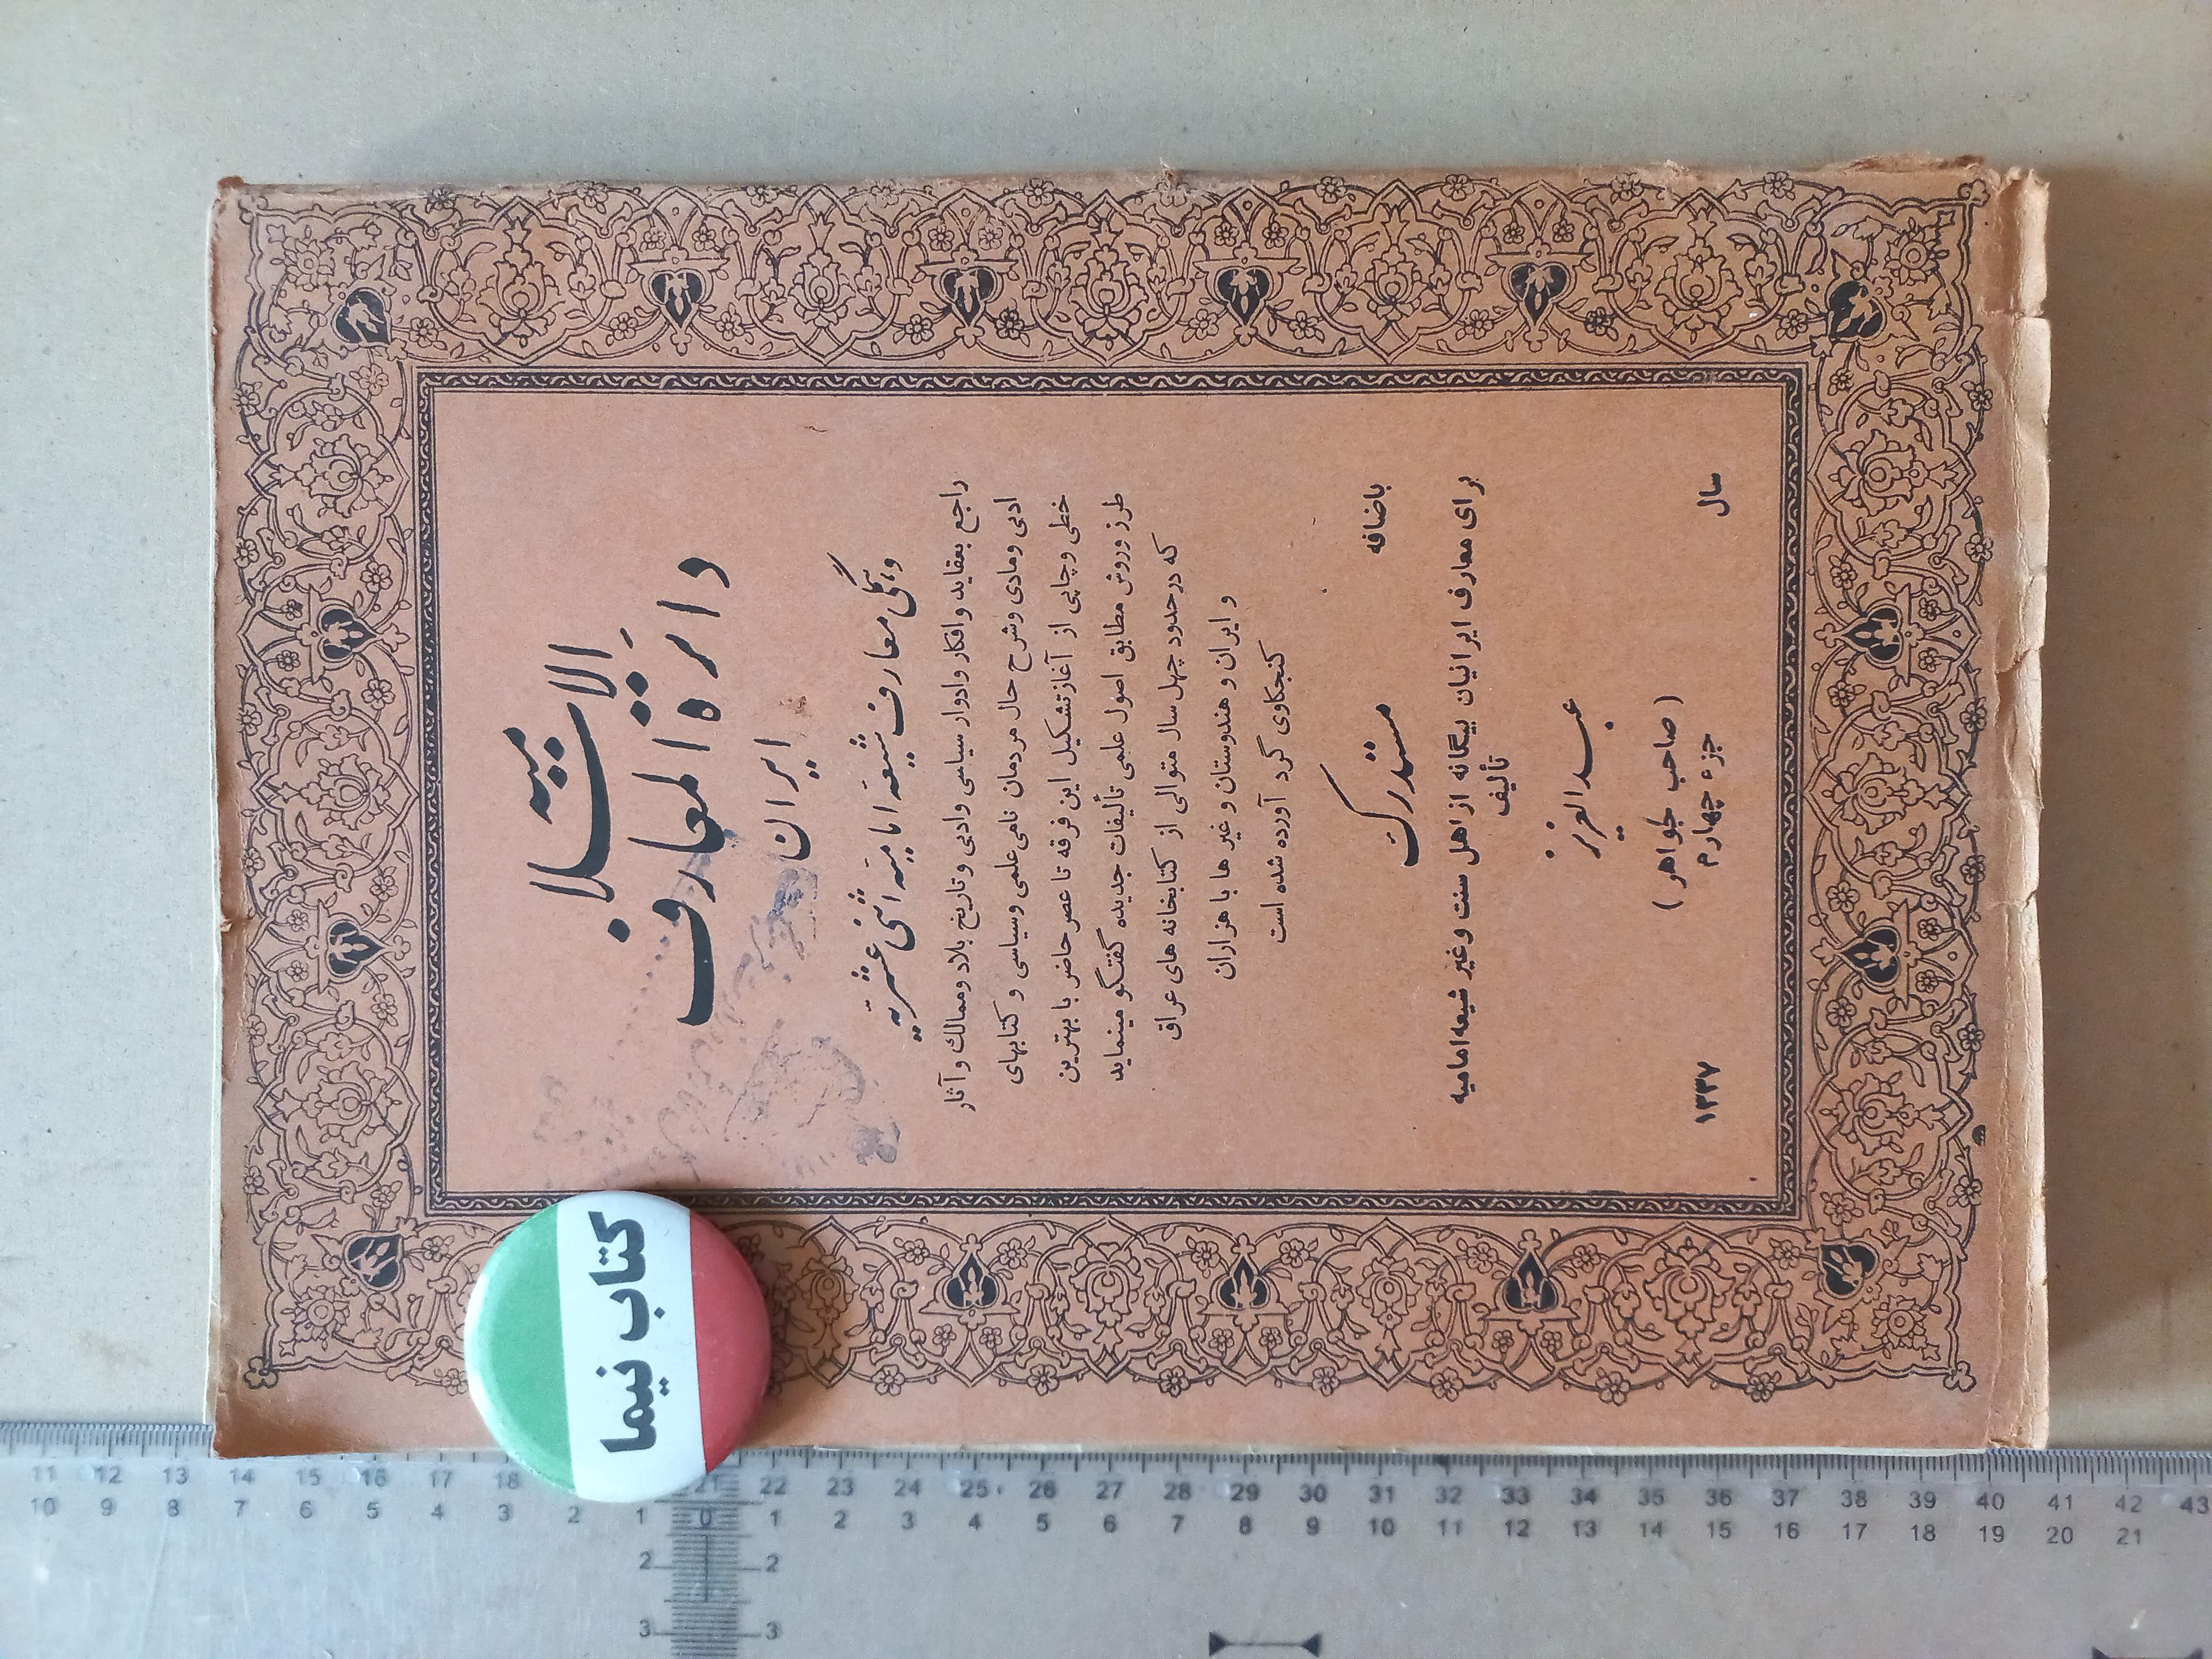 دائرة المعارف
الاسلامیه
ایران
و همگی معارف شیعه امامیه اثنی عشریه
راجع بعقاید و افکار وادوار سیاسی وادبی و تاریخ بلاد وممالك و آثار
ادبی ومادی وشرح حال مردمان نامی علمی وسیاسی و کتابهای
خطی وچاپی از آغاز تشکیل این فرقه تا عصر حاضر با بهترین
طرز وروش مطابق اصول علمی تألیفات جدیده گفتگو مینماید
که درحدود چهل سال متوالی از کتابخانه های عراق
و ایران و هندوستان و غیر ها با هزاران
کنجکاوی گرد آورده شده است
باضافه
مستدرک
برای معارف ایرانیان بیگانه از اهل سنت وغیر شیعه امامیه
تألیف
عبدالعزیز
(صاحب جواهر)
سال
جزء چهارم
۱۳۳۷
کتاب نیما
11 12 13 14 15 16 17 18 21 22 23 24 25 26 27 28 29 30 31 32 33 34 35 36 37 38 39 40 41 42 43
10 9 8 7 6 5 4 3 2 1 0 1 2 3 4 5 6 7 8 9 10 11 12 13 14 15 16 17 18 19 20 21
2 2
3 3